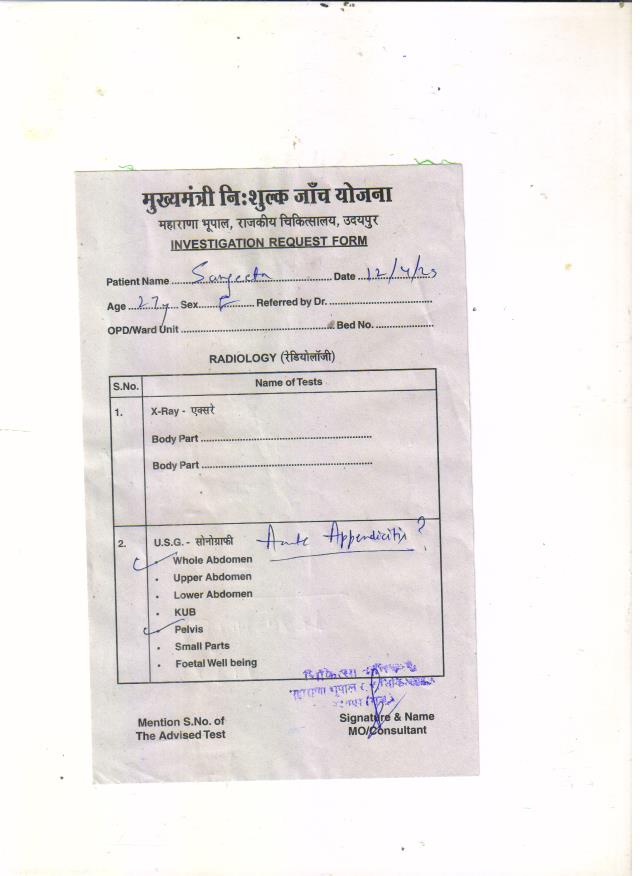 मुख्यमंत्री नि:शुल्क जाँच योजना
महाराणा भूपाल, राजकीय चिकित्सालय, उदयपुर
INVESTIGATION REQUEST FORM
Patient Name Sangeeta Date 12/4/23
Age 27y Sex F Referred by Dr.
OPD/Ward Unit Bed No.
RADIOLOGY (रेडियोलॉजी)
S.No. Name of Tests
1. X-Ray - एक्सरे
Body Part
Body Part
2. U.S.G. - सोनोग्राफी Acute Appendicitis?
Whole Abdomen
Upper Abdomen
Lower Abdomen
KUB
Pelvis
Small Parts
Foetal Well being
महाराणा भूपाल
Mention S.No. of
The Advised Test
Signature & Name
MO/Consultant